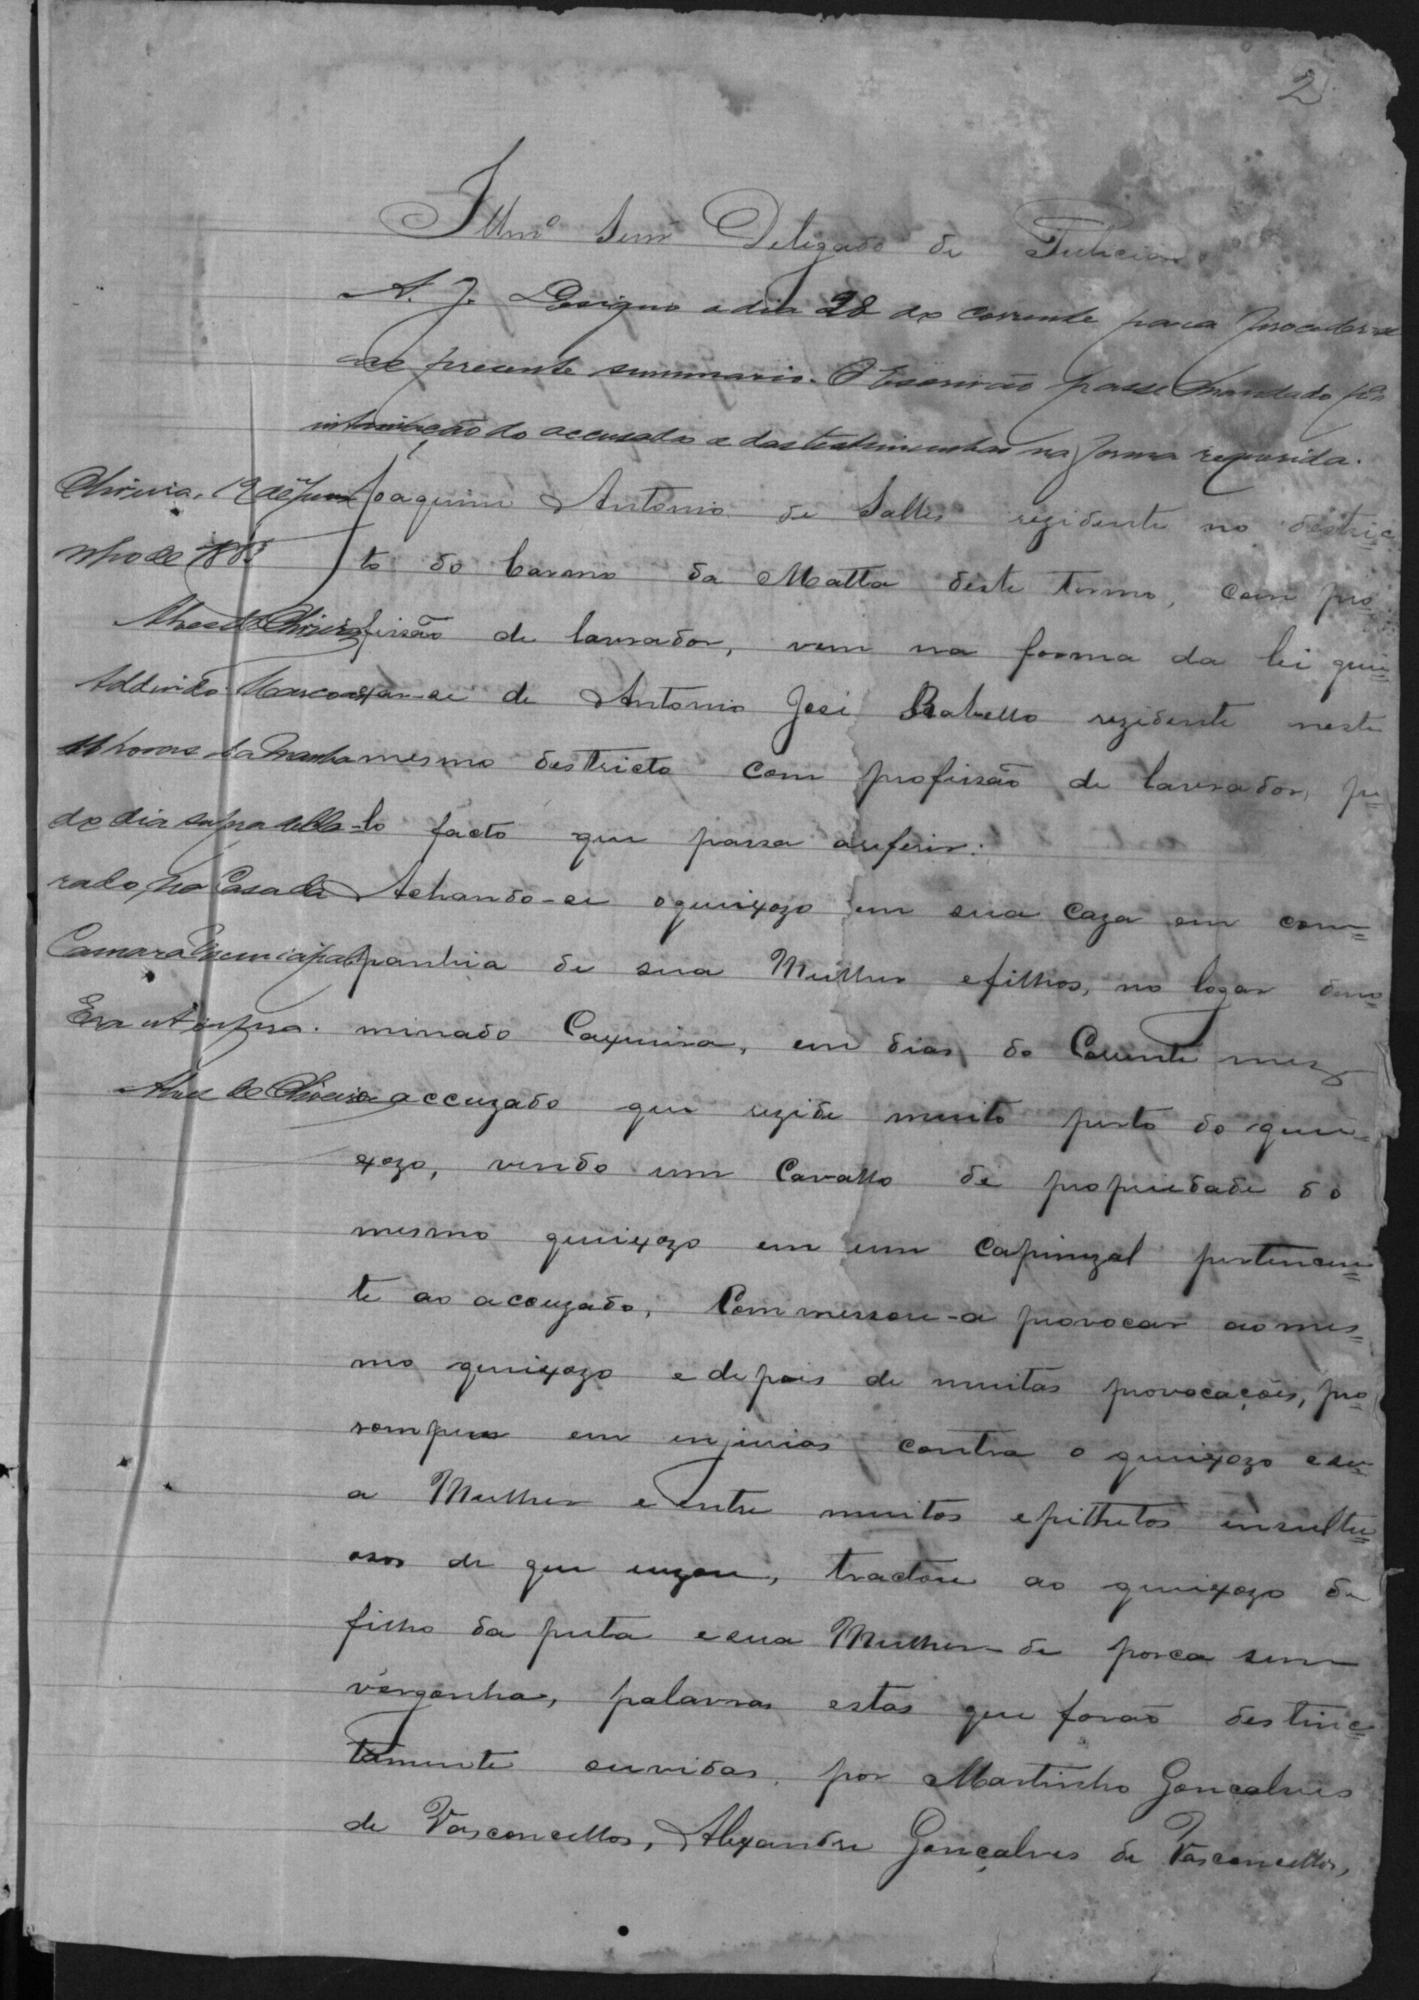 2
Illmº Senr Delegado de Policia
A. J. Designo o dia 28 do corrente para proceder-se
ao presente summario. O Escrivão passe mandado pª
intimação do accusado e das testimunhas na forma requerida.
Oliveira, 19 de Ju
nho de 188
Alves de Oliveira
Addindo. Marco as
11 horas da manha
do dia supra decla-
rado, na Casa da
Camara Municipal
Era ut supra.
Alves de Oliveira
Joaquim Antonio de Salles rezidente no destric=
to do Carmo da Matta deste Termo, com pro=
fissão de lavrador, vem na forma da lei quei=
xar-se de Antonio José Rabello rezidente neste
mesmo destricto com profissão de lavrador, pe=
lo facto que passa areferir:
Achando-se oqueixozo em sua caza em com=
panhia de sua Mulher efilhos, no logar deno=
minado Caxueira, em dias do Corrente mez
o accuzado que rezide muito perto do quei=
xozo, vendo um Cavallo de propriedade do
mesmo queixozo em um Capinzal pertencen=
te ao accuzado, Commessou-a provocar aomes=
mo queixozo e depois de muitas provocações, pro=
rompeu em enjurias contra o queixozo esu=
a Mulher e entre muitos epithetos insultu=
osos de que uzou, tractou ao queixozo de
filho da puta esua Mulher de porca sem
vergonha, palavras estas que forão destinc=
tamente ouvidas por Martinho Gonçalves
de Vasconcellos, Alexandre Gonçalves de Vasconcellos,